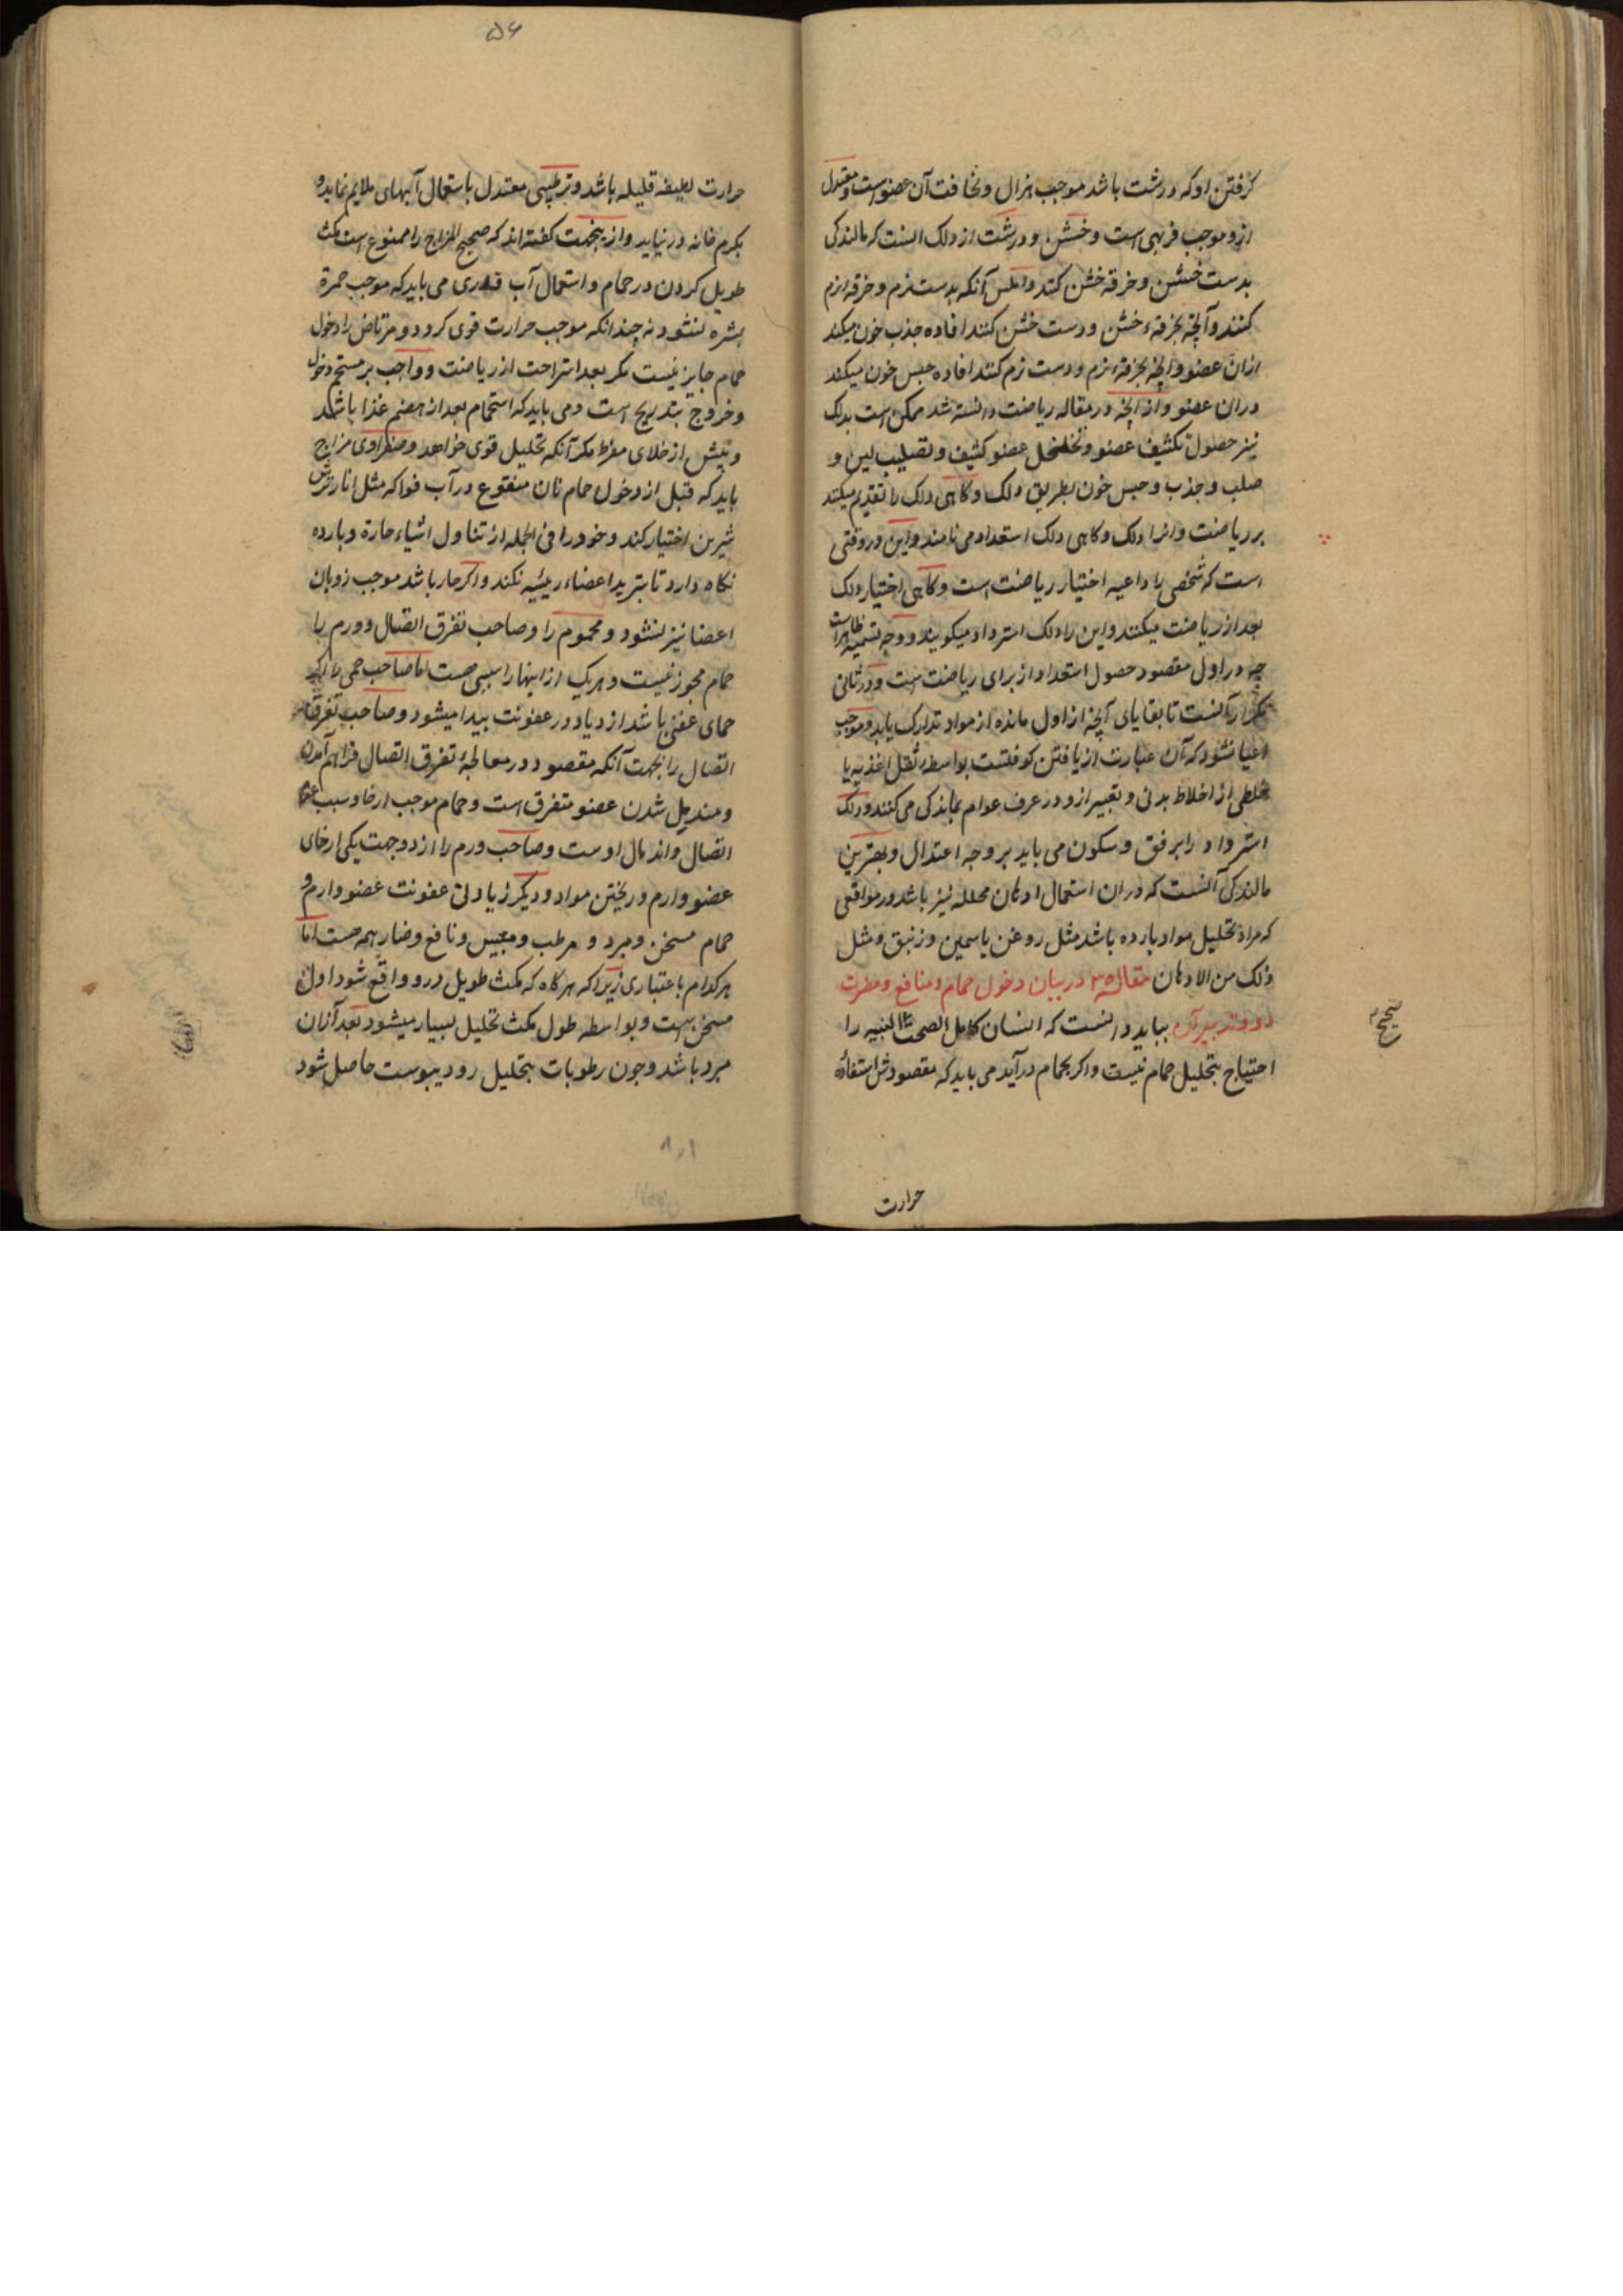 کرفتن او که درشت باشد موجب هزال و نخافت آن عضو است و معتدل
ازو موجب فربهی است و خشن و درشت از دلک آنست که مالندکی
بدست خشن و خرقه خشن کنند و املس آنکه بدست نرم و خرقه نرم
کنند و آنچه بخرقهٔ خشن و دست خشن کنند افاده جذب خون میکند
ازان عضو و آنچه بخرقهٔ نرم و دست نرم کنند افاده حبس خون میکند
دران عضو و از آنچه در مقاله ریاضت دانسته شد ممکن است بدلک
نیز حصول تکثیف عضو و تخلخل عضو کثیف و تصلیب لین و
صلب و جذب و حبس خون بطریق دلک و کاهی دلک را تقدیم میکنند
بر ریاضت و انرا دلک و کاهی دلک استعداد می نامند و این در وقتی
است که شخصی را داعیه اختیار ریاضت است و کاهی اختیار دلک
بعد از ریاضت میکنند و این را دلک استرداد میکویند و وجه تسمیه ظاهر است
چه در اول مقصود حصول استعداد از برای ریاضت است و در ثانی
تکرار آنست تا بقایای آنچه از اول مانده از مواد تدارک یابد و موجب
اعیا نشود که آن عبارت از یافتن کوفتست بواسطه ثقل اغذیه یا
خلطی از اخلاط بدنی و تعبیر ازو در عرف عوام بماندکی می کنند و دلک
استرداد را برفق و سکون می باید بر وجه اعتدال و بهترین
مالندکی آنست که دران استعمال ادهان محلله نیز باشد در مواقعی
که مراد تحلیل مواد بارده باشد مثل روغن یاسمین و زنبق و مثل
ذلک من الادهان مقاله ۳ در بیان دخول حمام و منافع و مضرت
او و تدبیر آن بباید دانست که انسان کامل الصحت البنیه را
احتیاج بتحلیل حمام نیست و اکر بحمام در آید می باید که مقصودش استفاده
صحیح
حرارت
۵۶
حرارت لطیفه قلیله باشد و ترطیبی معتدل باستعمال آبهای ملایم نماید و
بکرم خانه در نیاید و ازینجهت کفته اند که صحیح المزاج را ممنوع است مکث
طویل کردن در حمام و استعمال آب قدری می باید که موجب حمرة
بشره نشود نه چندانکه موجب حرارت قوی کردد و مرتاض را دخول
حمام جایز نیست مکر بعد استراحت از ریاضت و واجب بر مستحم دخول
و خروج بتدریج است و می باید که استحمام بعد از هضم غذا باشد
و پیش از خلای مفرط مکر آنکه تحلیل قوی خواهد و صفراوی مزاج
باید که قبل از دخول حمام نان منقوع در آب فواکه مثل انار ترش
شیرین اختیار کند و خود را فی الجمله از تناول اشیاء حاره و بارده
نکاه دارد تا بترید اعضاء رئیسه نکند و اکر حار باشد موجب ذوبان
اعضا نیز نشود و محموم را و صاحب تفرق اتصال و ورم را
حمام مجوز نیست و هر یک از اینها را سببی هست اما صاحب حمی را اکر
حمای عفنی باشد ازدیاد در عفونت پیدا میشود و صاحب تفرق
اتصال را بجهت آنکه مقصود در معالجهٔ تفرق اتصال فراهم آمدن
و مندمل شدن عضو متفرق است و حمام موجب ارخا و سبب عدم
اتصال و اندمال اوست و صاحب ورم را از دو جهت یکی ارخای
عضو وارم و ریختن مواد و دیکر زیادتی عفونت عضو وارم و
حمام مسخن و مبرد و مرطب و میبس و نافع و ضار همه هست اما
هر کدام باعتباری زیرا که هر کاه که مکث طویل درو واقع شود اول
مسخن است و بواسطه طول مکث تحلیل بسیار میشود بعد ازان
مبرد باشد و چون رطوبات بتحلیل رود یبوست حاصل شود